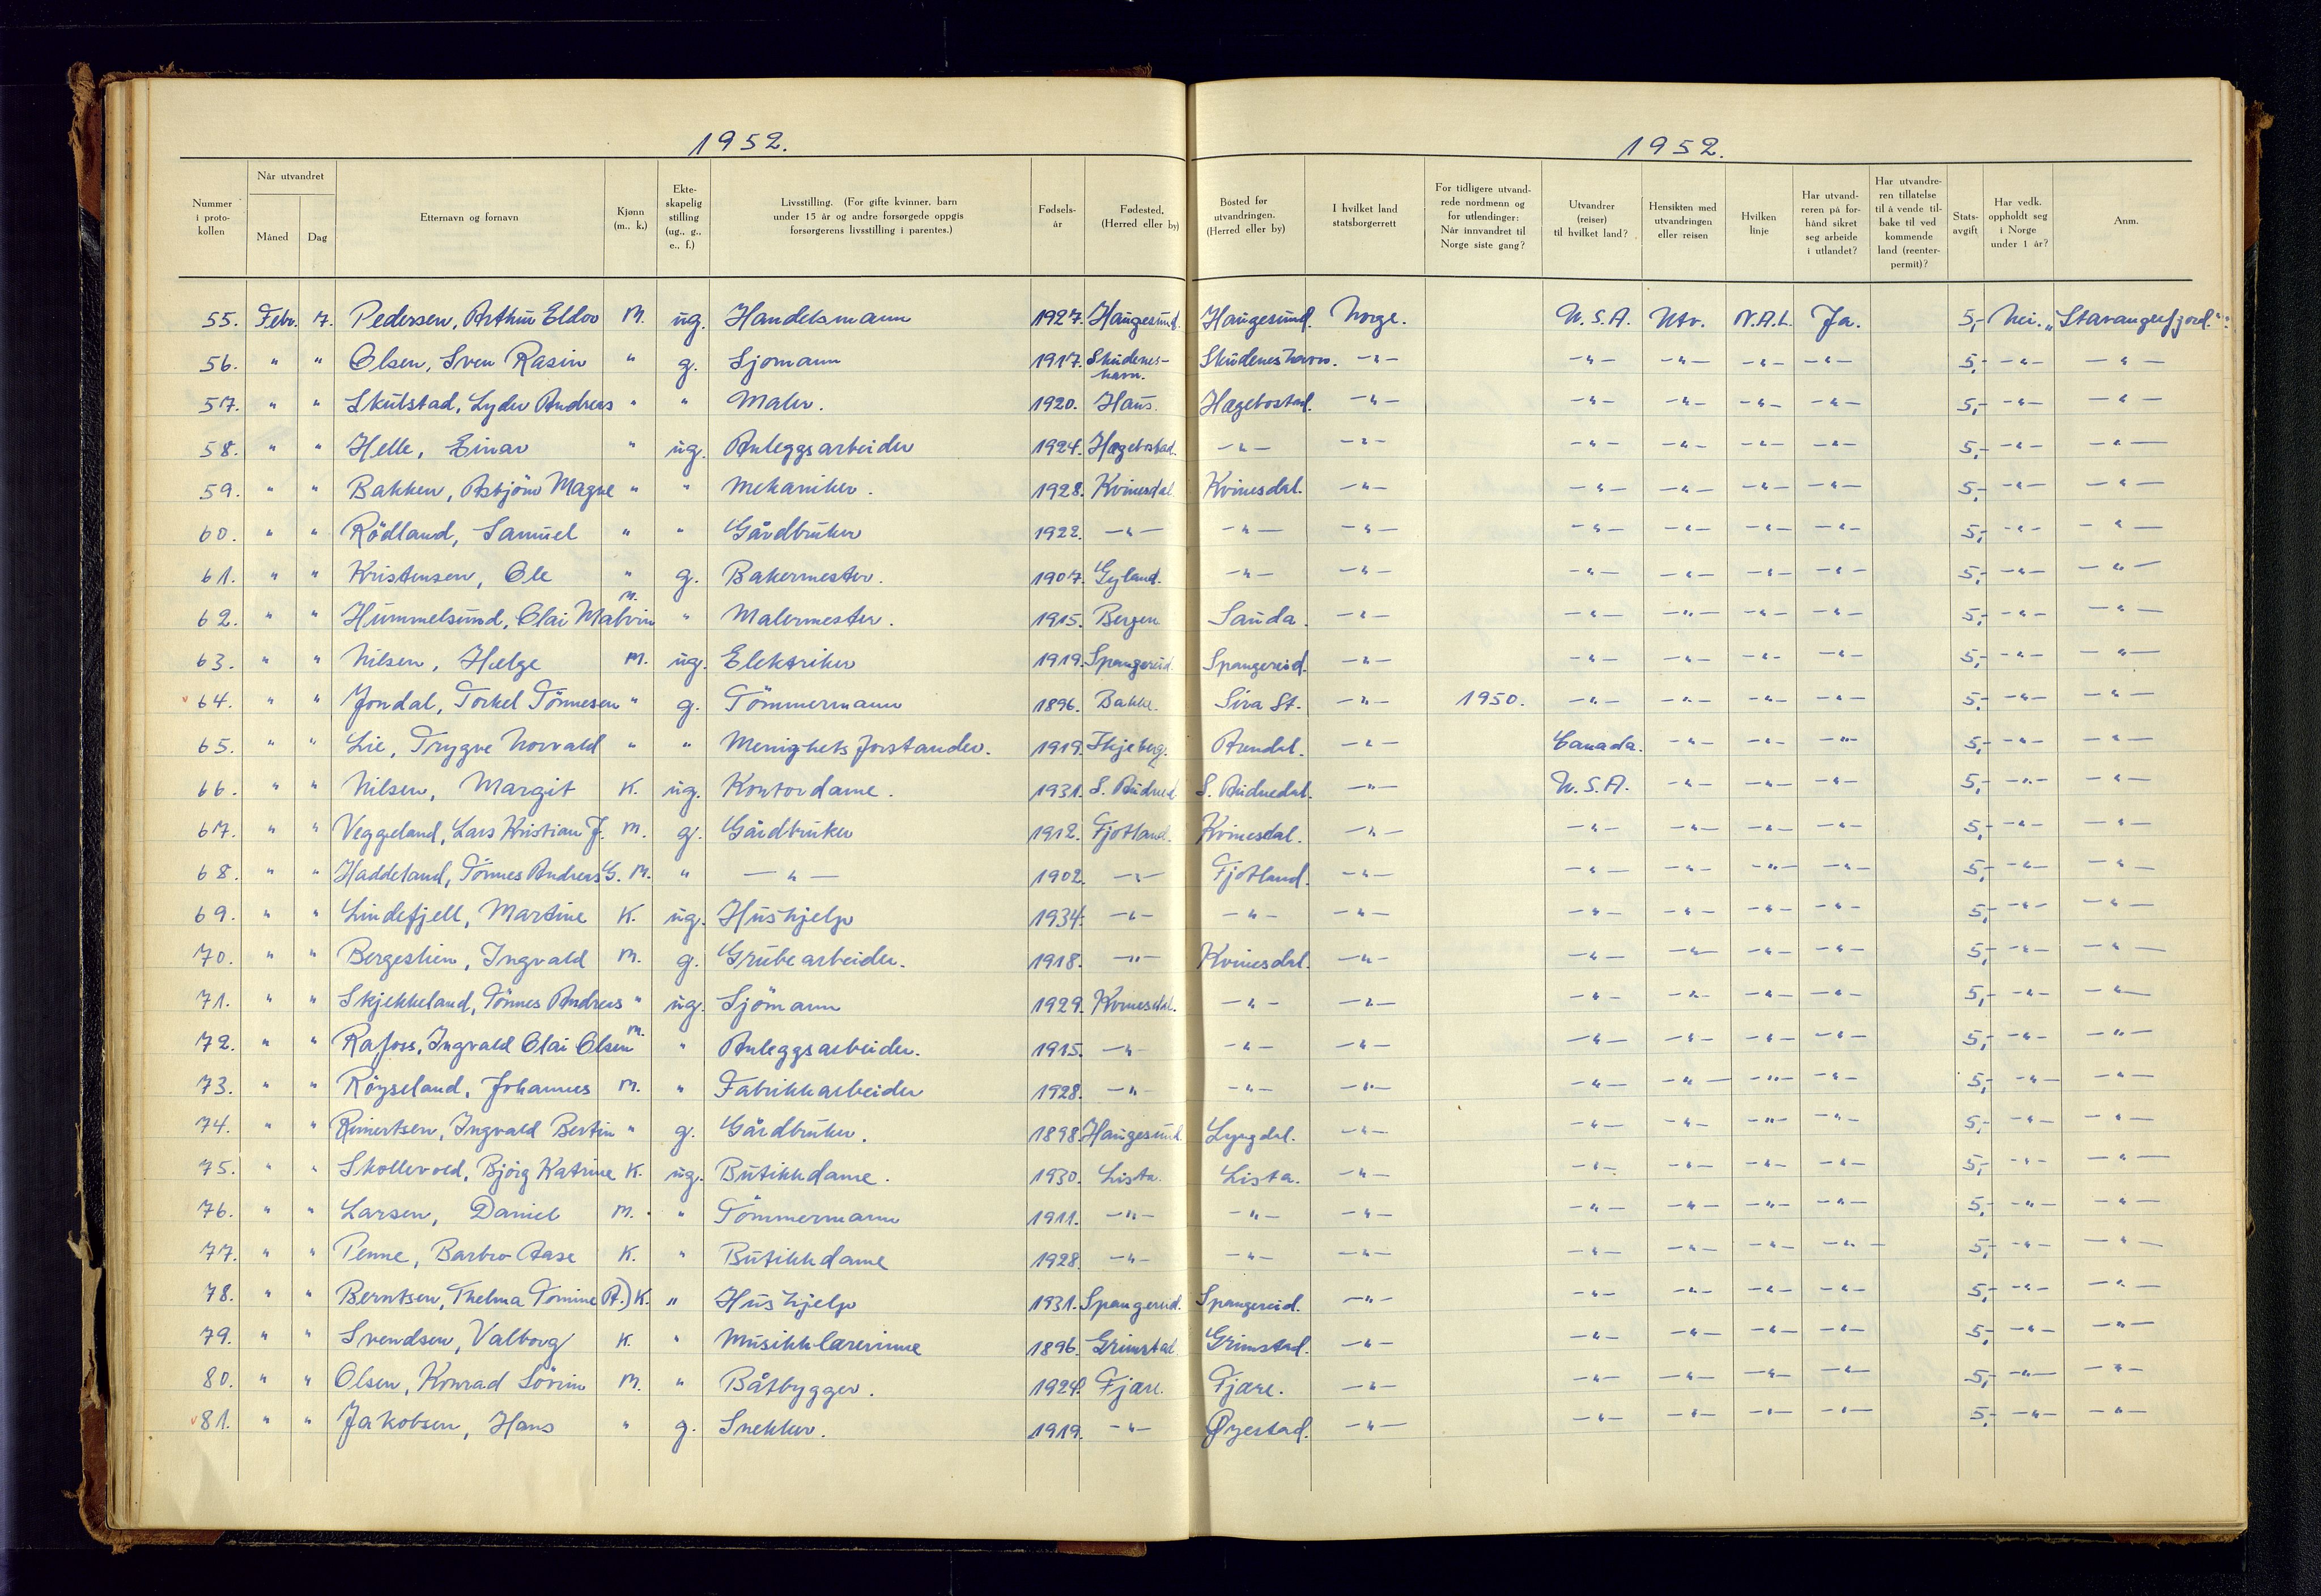 1952. 1952.
Nummer i protokollen | Når utvandret | Måned | Dag | Etternavn og fornavn | Kjønn (m., k.) | Ekteskapelig stilling (ug., g., e., f.) | Livsstilling. (For gifte kvinner, barn under 15 år og andre forsørgede oppgis forsørgerens livsstilling i parentes.) | Fødselsår | Fødested. (Herred eller by) | Bosted før utvandringen. (Herred eller by) | I hvilket land statsborgerrett | For tidligere utvandrede nordmenn og for utlendinger: Når innvandret til Norge siste gang? | Utvandrer (reiser) til hvilket land? | Hensikten med utvandringen eller reisen | Hvilken linje | Har utvandreren på forhånd sikret seg arbeide i utlandet? | Har utvandreren tillatelse til å vende tilbake til ved kommende land (reenterpermit)? | Statsavgift | Har vedk. oppholdt seg i Norge under 1 år? | Anm.
55. Febr. 7. Pedersen, Arthur Eldov M. ug. Handelsmann 1927. Haugesund. Haugesund. Norge. U.S.A. Utv. N.A.L. Ja. 5,- Nei. "Stavangerfjord".
56. " " Olsen, Sven Rasin " g. Sjømann 1917. Skudeneshavn. Skudeneshavn. -"- -"- -"- -"- -"- 5,- -"- -"-
57. " " Skulstad, Lyder Andreas " " Maler. 1920. Haus. Hægebostad. -"- -"- -"- -"- -"- 5,- -"- -"-
58. " " Helle, Einar " ug. Anleggsarbeider 1924. Hægebostad. -"- -"- -"- -"- -"- -"- 5,- -"- -"-
59. " " Bakken, Asbjörn Magne " " Mekaniker. 1928. Kvinesdal Kvinesdal. -"- -"- -"- -"- -"- 5,- -"- -"-
60. " " Rödland, Samuel " " Gårdbruker 1922. -"- -"- -"- -"- -"- -"- -"- 5,- -"- -"-
61. " " Kristensen, Ole " g. Bakermester. 1907. Gyland. -"- -"- -"- -"- -"- -"- 5,- -"- -"-
62. " " Hummelsund, Olai Malvin M. " Malermester. 1915. Bergen Sauda. -"- -"- -"- -"- -"- 5,- -"- -"-
63. " " Nilsen, Helge M. ug. Elektriker 1919. Spangereid. Spangereid. -"- -"- -"- -"- -"- 5,- -"- -"-
64. " " Jondal, Torkel Tönnesen " g. Tömmermann 1896. Bakke. Sira St. -"- 1950. -"- -"- -"- -"- 5,- -"- -"-
65. " " Lie, Trygve Norvald " " Menighetsforstander. 1919. Skjeberg. Arendal. -"- Canada. -"- -"- -"- 5,- -"- -"-
66. " " Nilsen, Margit K. ug. Kontordame. 1931. S. Audned. S. Audnedal. -"- U.S.A. -"- -"- -"- 5,- -"- -"-
67. " " Veggeland, Lars Kristian J. M. g. Gårdbruker 1912. Fjotland. Kvinesdal. -"- -"- -"- -"- -"- 5,- -"- -"-
68. " " Haddeland, Tönnes Andreas G. M. " -"- 1902. -"- Fjotland. -"- -"- -"- -"- -"- 5,- -"- -"-
69. " " Lindefjell, Martine K. ug. Hushjelp 1934. -"- -"- -"- -"- -"- -"- -"- 5,- -"- -"-
70. " " Bergestien, Ingvald M. g. Grubearbeider. 1918. -"- Kvinesdal. -"- -"- -"- -"- -"- 5,- -"- -"-
71. " " Skjekkeland, Tönnes Andreas " ug. Sjömann 1929. Kvinesdal. -"- -"- -"- -"- -"- -"- 5,- -"- -"-
72. " " Rafoss, Ingvald Olai Olsen M. " Anleggsarbeider. 1915. -"- -"- -"- -"- -"- -"- -"- 5,- -"- -"-
73. " " Röyseland, Johannes M. " Fabrikkarbeider 1928. -"- -"- -"- -"- -"- -"- -"- 5,- -"- -"-
74. " " Reinertsen, Ingvald Bertin " g. Gårdbruker. 1898. Haugesund. Lyngdal. -"- -"- -"- -"- -"- 5,- -"- -"-
75. " " Skollevold, Björg Katrine K. ug. Butikkdame. 1930. Lista. Lista. -"- -"- -"- -"- -"- 5,- -"- -"-
76. " " Larsen, Daniel M. " Tömmermann 1911. -"- -"- -"- -"- -"- -"- -"- 5,- -"- -"-
77. " " Penne, Barbro Aase K. " Butikkdame 1928. -"- -"- -"- -"- -"- -"- -"- 5,- -"- -"-
78. " " Berntsen, Thelma Tomine A.) K. " Hushjelp 1931. Spangereid. Spangereid. -"- -"- -"- -"- -"- 5,- -"- -"-
79. " " Svendsen, Valborg K. " Musikklærerinne 1896. Grimstad. Grimstad. -"- -"- -"- -"- -"- 5,- -"- -"-
80. " " Olsen, Konrad Sörin M. " Båtbygger. 1924. Fjære. Fjære. -"- -"- -"- -"- -"- 5,- -"- -"-
81. " " Jakobsen, Hans " g. Snekker. 1919. -"- Øyestad. -"- -"- -"- -"- -"- 5,- -"- -"-